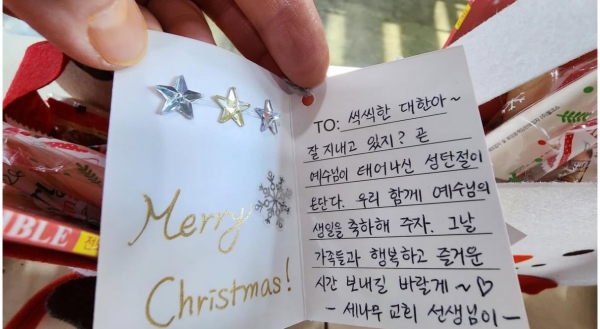 Merry
Christmas!
TO: 씩씩한 대한아~
잘 지내고 있지? 곧
예수님이 태어나신 성탄절이
온단다. 우리 함께 예수님의
생일을 축하해 주자. 그날
가족들과 행복하고 즐거운
시간 보내길 바랄게~♡
- 세나무 교회 선생님이 -
IBLE